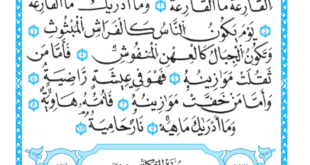 الْقَارِعَةُ مَا الْقَارِعَةُ ۝ وَمَا أَدْرِيكَ مَا الْقَارِعَةُ
يَوْمَ يَكُونُ النَّاسُ كَالْفَرَاشِ الْمَبْثُوثِ
وَتَكُونُ الْجِبَالُ كَالْعِهْنِ الْمَنْفُوشِ ۝ فَأَمَّا مَنْ
ثَقُلَتْ مَوَازِينُهُ ۝ فَهُوَ فِي عِيشَةٍ رَاضِيَةٍ ۝
وَأَمَّا مَنْ خَفَّتْ مَوَازِينُهُ ۝ فَأُمُّهُ هَاوِيَةٌ ۝
وَمَا أَدْرِيكَ مَا هِيَهْ ۝ نَارٌ حَامِيَةٌ ۝